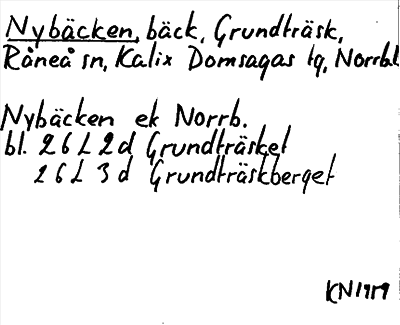 Nybäcken, bäck, Grundträsk,
Råneå sn, Kalix Domsagas tg, Norrb.l
Nybäcken ek Norrb.
bl. 26L2d Grundträsket
26L3d Grundträskberget